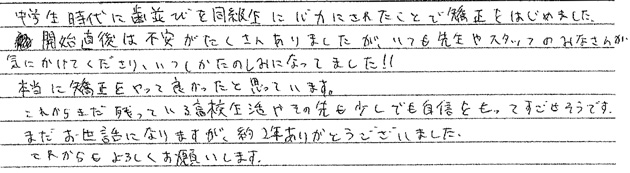 中学生時代に歯並びを同級生にバカにされたことで矯正をはじめました。
開始直後は不安がたくさんありましたが、いつも先生やスタッフのみなさんが
気にかけてくださり、いつしかたのしみになってました!!
本当に矯正をやって良かったと思っています。
これからまだ残っている高校生活やその先も少しでも自信をもってすごせそうです。
まだお世話になりますが、約2年ありがとうございました。
これからもよろしくお願いします。